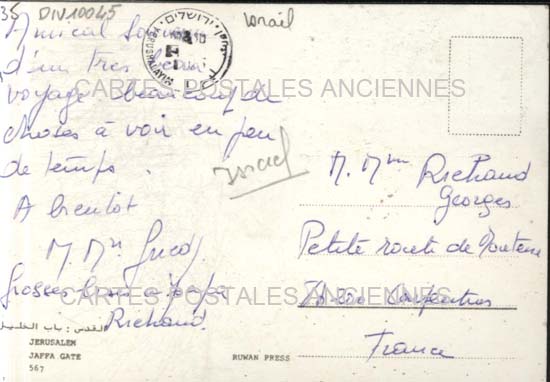 35 DIV10045
Israil
ירושלים
YERUSHALAYIM
Amical Souvenir
d'un Tres beau
voyage beaucoup de
CARTES POSTALES ANCIENNES
choses à voir en peu
de temps.
Israel
A bientot
M. Mme
M. Mme Richaud
Georges
Petite route de
Carpentras
France
Grosses bises à papa
CARTES POSTALES ANCIENNES
Richaud.
القدس : باب الخليل
JERUSALEM
JAFFA GATE
567
RUWAN PRESS